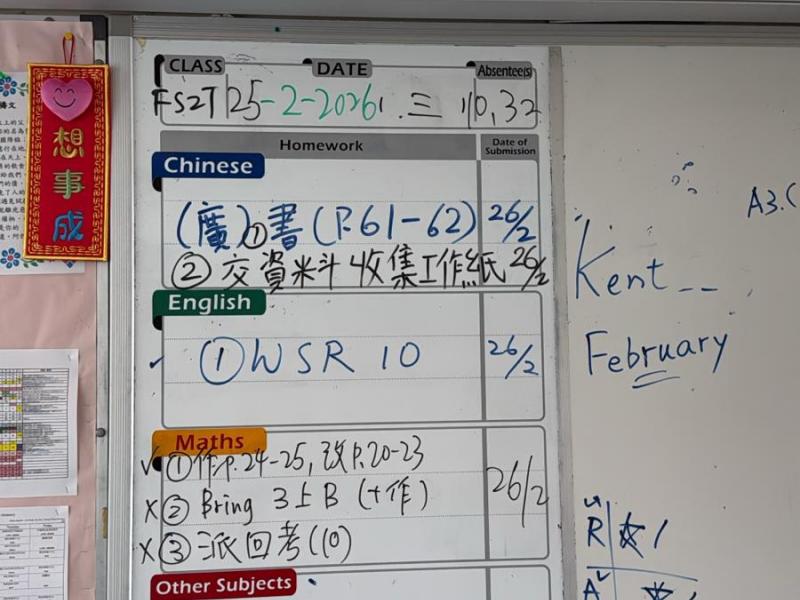 想事成
CLASS DATE Absentee(s)
25-2-2026 三 10, 32
Homework Date of Submission
Chinese
(廣) ① 書 (P.61-62) 26/2
② 交資料收集工作紙 26/2
English
① WSR 10 26/2
Maths
① 作P.24-25, 改P.20-23
② Bring 3上B (+作) 26/2
③ 派回考(10)
Other Subjects
Kent
February
R 1
A